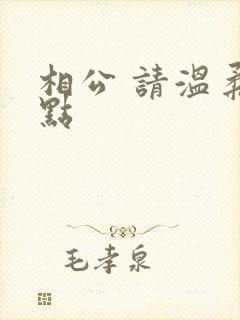 相公 請溫柔
點
毛孝泉